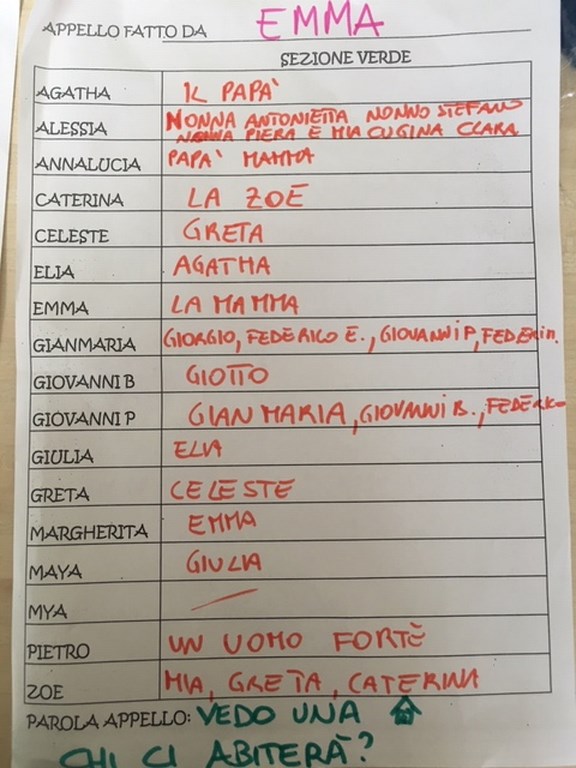 APPELLO FATTO DA EMMA
SEZIONE VERDE
AGATHA IL PAPA'
ALESSIA NONNA ANTONIETTA NONNO STEFANO
NONNA PIERA E MIA CUGINA CLARA
ANNALUCIA PAPA' MAMMA
CATERINA LA ZOE
CELESTE GRETA
ELIA AGATHA
EMMA LA MAMMA
GIANMARIA GIORGIO, FEDERICO E., GIOVANNI P, FEDERI M.
GIOVANNI B GIOTTO
GIOVANNI P GIANMARIA, GIOVANNI B., FEDERICO
GIULIA ELIA
GRETA CELESTE
MARGHERITA EMMA
MAYA GIULIA
MYA
PIETRO UN UOMO FORTE
ZOE MIA, GRETA, CATERINA
PAROLA APPELLO: VEDO UNA
CHI CI ABITERÀ?